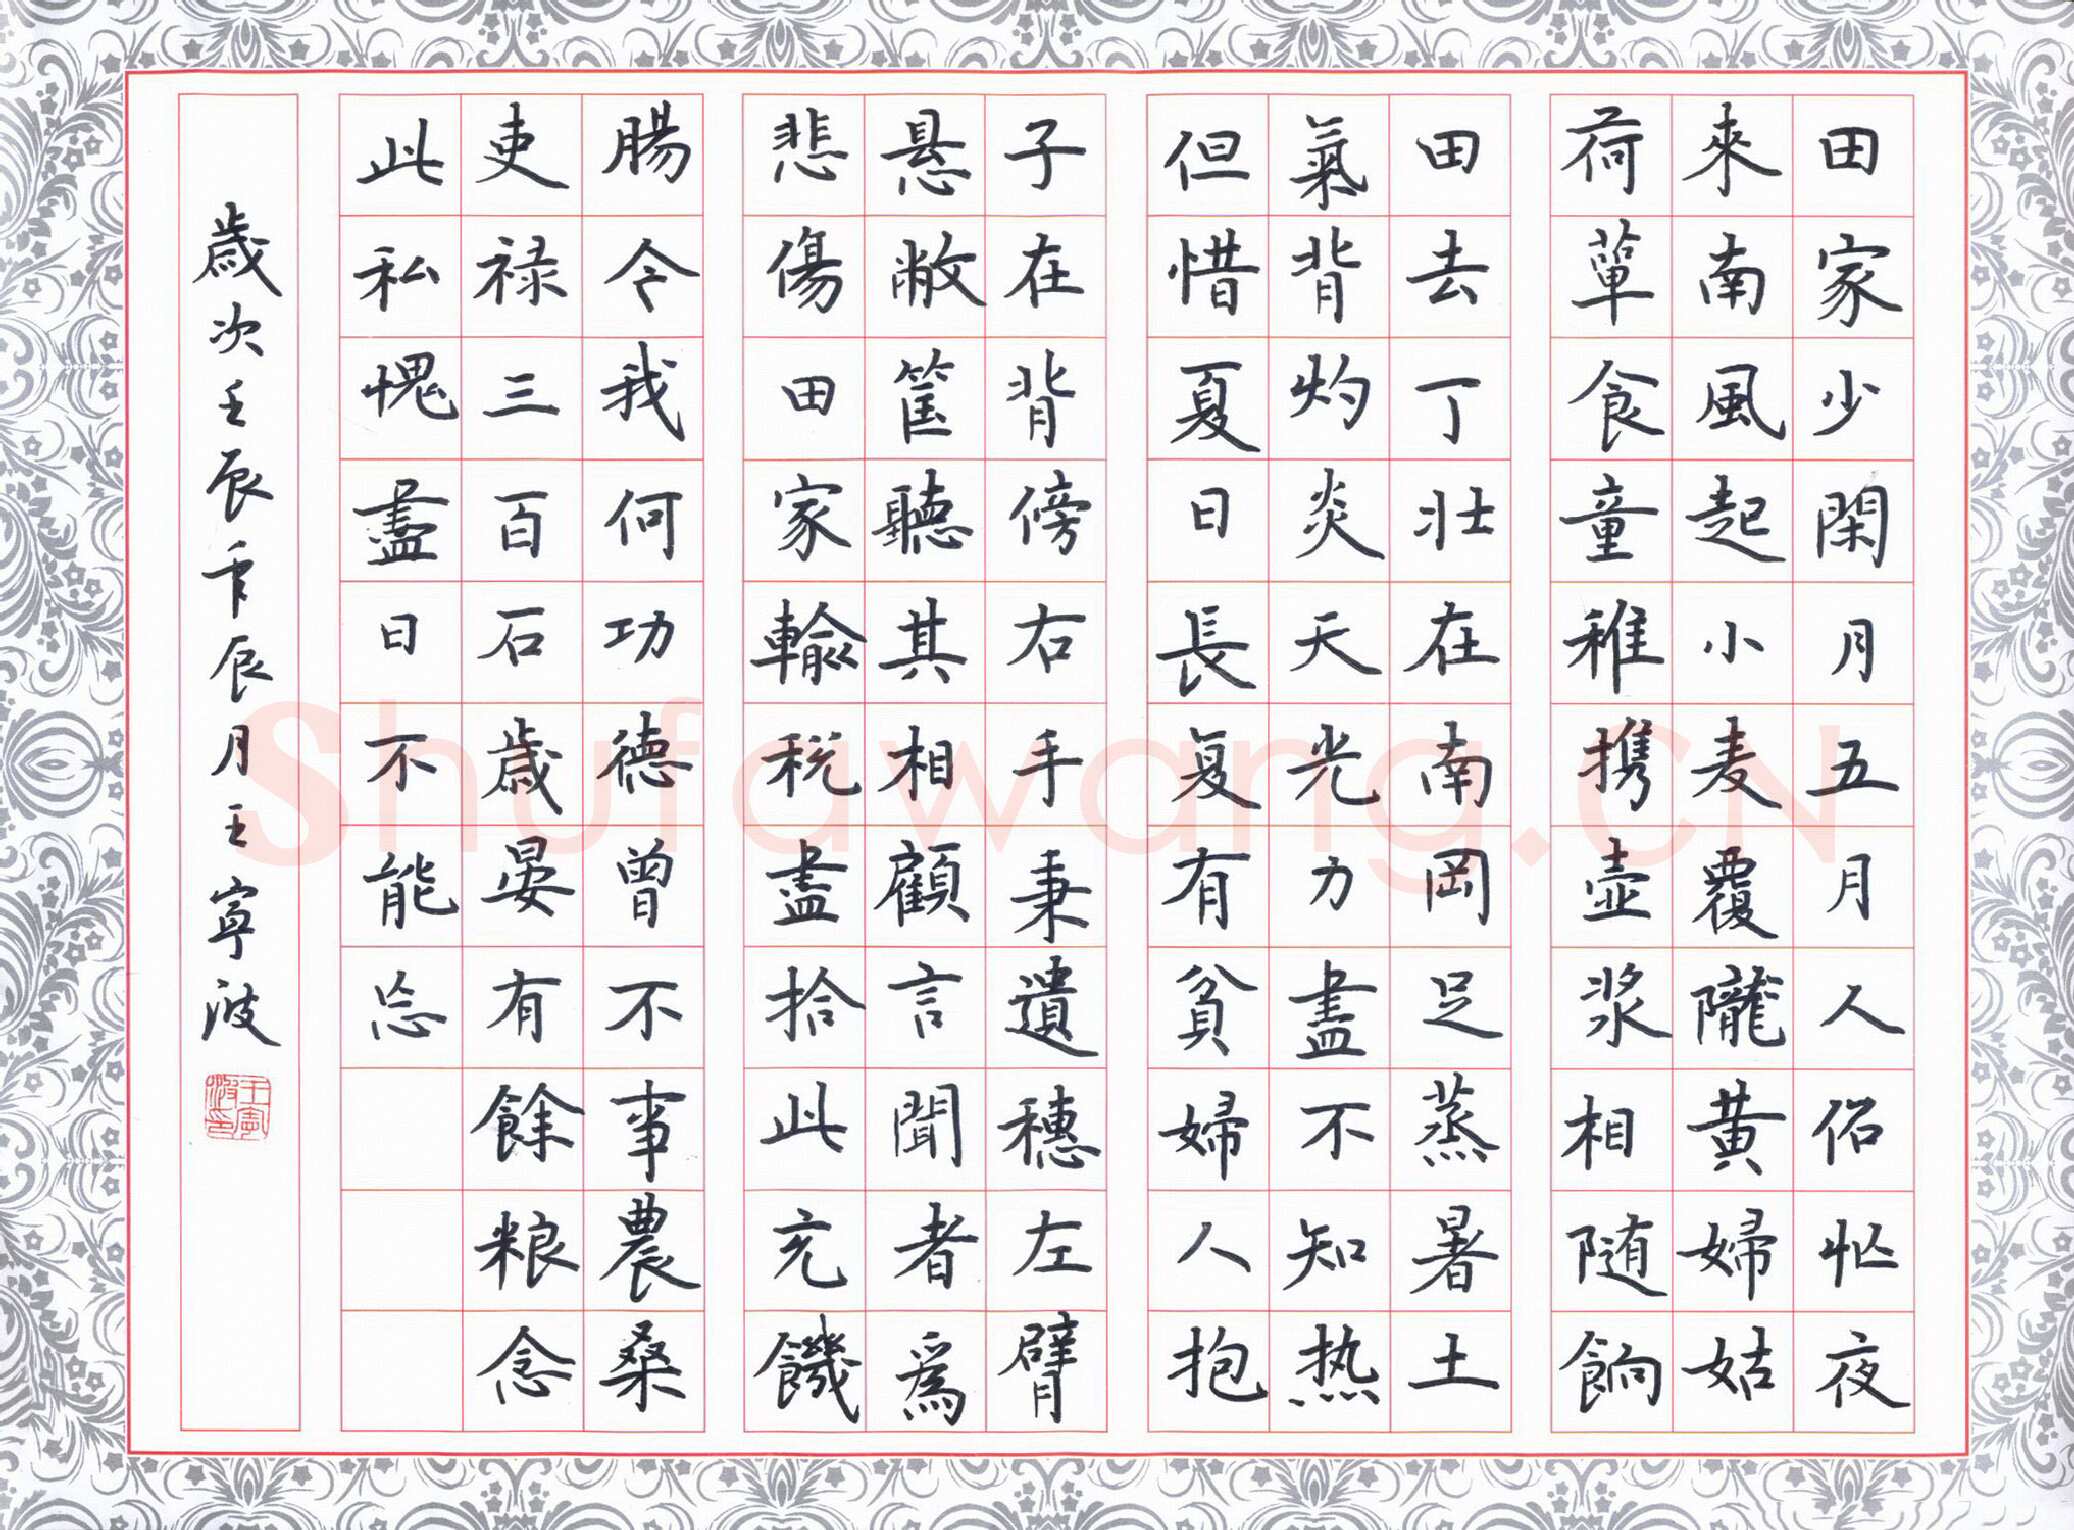 田家少閑月五月人倍忙夜
來南風起小麦覆隴黄婦姑
荷簞食童稚携壺浆相随餉
田去丁壮在南岡足蒸暑土
氣背灼炎天光力盡不知热
但惜夏日長复有貧婦人抱
子在背傍右手秉遺穗左臂
悬敝筐聽其相顧言聞者爲
悲傷田家輸税盡拾此充饑
腸今我何功德曾不事農桑
吏禄三百石歲晏有餘粮念
此私愧盡日不能忘
歲次壬辰年辰月王寧波
王寧波印
Shufawang.CN